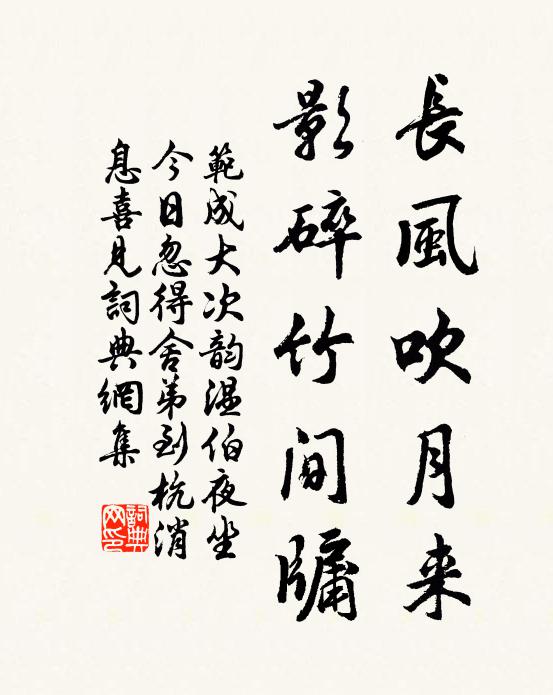 長風吹月来
影碎竹间牗
範成大次韵温伯夜坐
今日忽得舍弟到杭消
息喜見詞典網集
詞典
网印